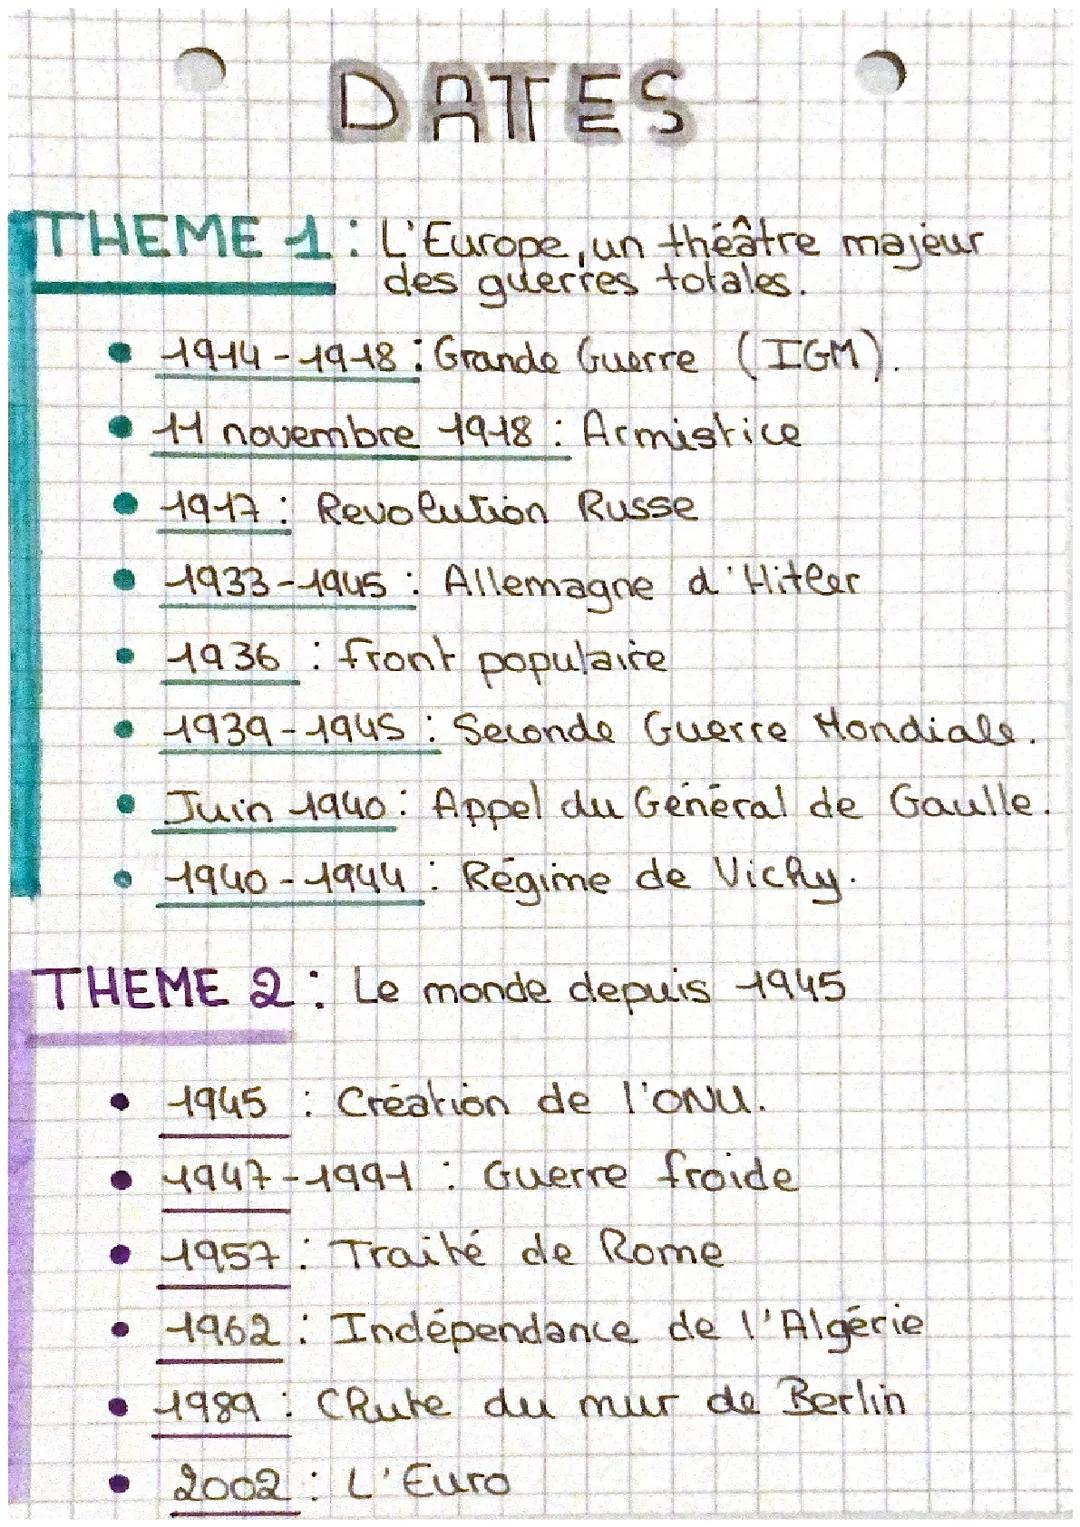 DATES
THEME 1 : L'Europe, un théâtre majeur
des guerres totales.
• 1914-1918 : Grande Guerre (IGM).
• 11 novembre 1918 : Armistice
• 1917 : Revolution Russe
• 1933-1945 : Allemagne d'Hitler
• 1936 : front populaire
• 1939-1945 : Seconde Guerre Mondiale.
• Juin 1940 : Appel du Général de Gaulle.
• 1940-1944 : Régime de Vichy.
THEME 2 : Le monde depuis 1945
• 1945 : Création de l'ONU.
• 1947-1991 : Guerre froide
• 1957 : Traité de Rome
• 1962 : Indépendance de l'Algérie
• 1989 : Chute du mur de Berlin
• 2002 : L'Euro